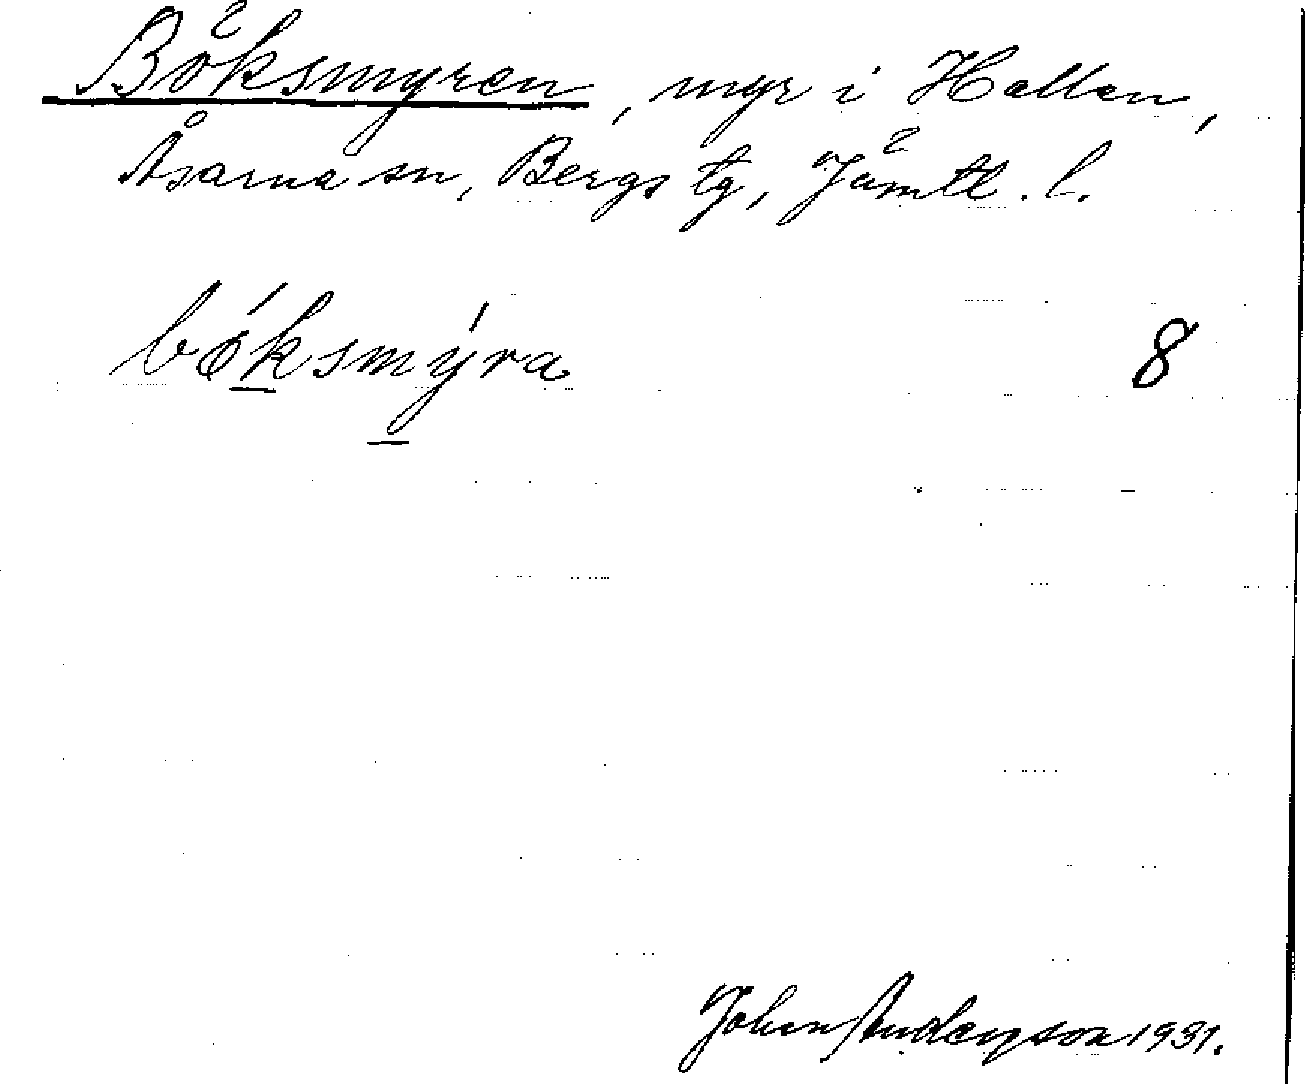 Böksmyren, myr i Hallen,
Åsarna sn, Bergs tg, Jämtl. l.
bǿksmýra 8
John Anderson 1931.